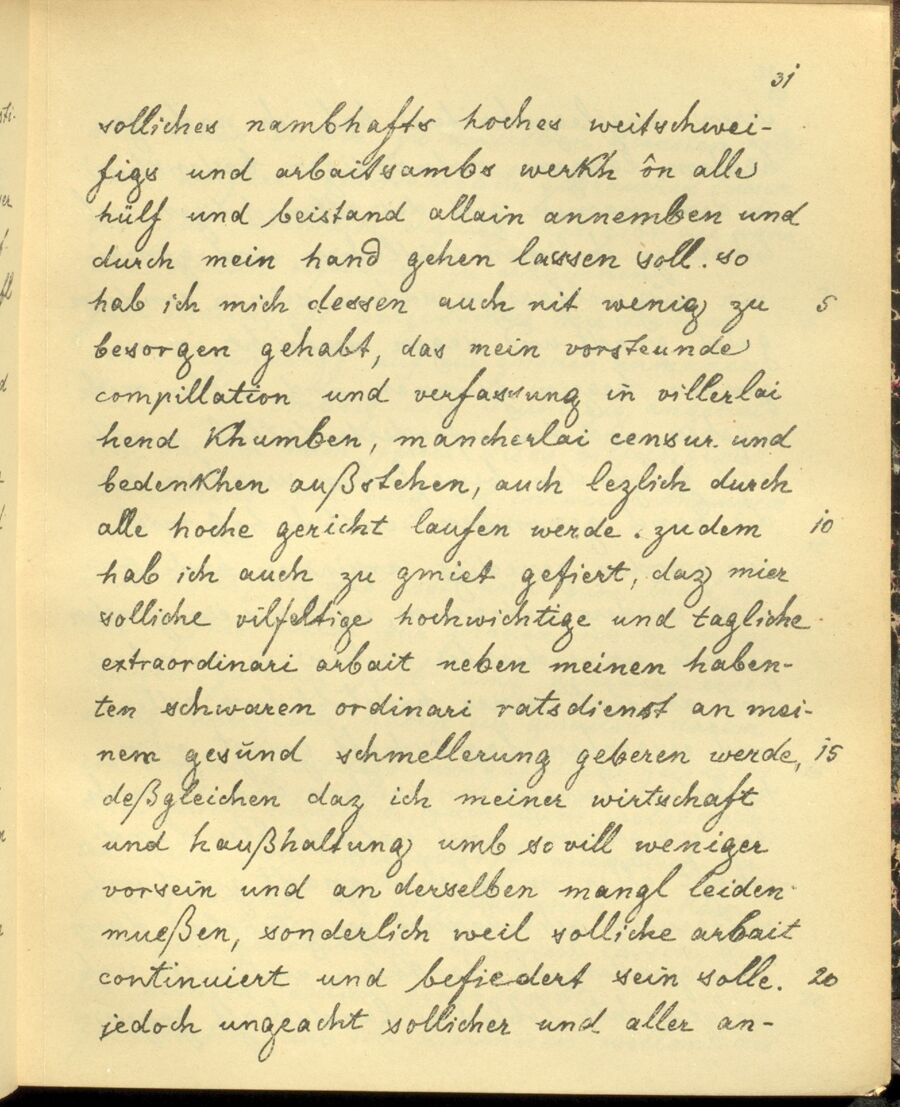 31
solliches nambhafts hoches weitschwei-
figs und arbaitsambs werkh ôn alle
hülf und beistand allain annemben und
durch mein hand gehen lassen soll. so
hab ich mich dessen auch nit wenig zu 5
besorgen gehabt, das mein vorsteunde
compillation und verfassung in villerlai
hend khumben, mancherlai censur und
bedenkhen außstehen, auch lezlich durch
alle hoche gericht laufen werde. zudem 10
hab ich auch zu gmiet gefiert, daz mier
solliche vilfeltige hochwichtige und tagliche
extraordinari arbait neben meinen haben-
ten schwaren ordinari ratsdienst an mei-
nem gesund schmellerung geberen werde, 15
deßgleichen daz ich meiner wirtschaft
und haußhaltung umb so vill weniger
vorsein und an derselben mangl leiden
mueßen, sonderlich weil solliche arbait
continuiert und befiedert sein solle. 20
jedoch ungeacht sollicher und aller an-